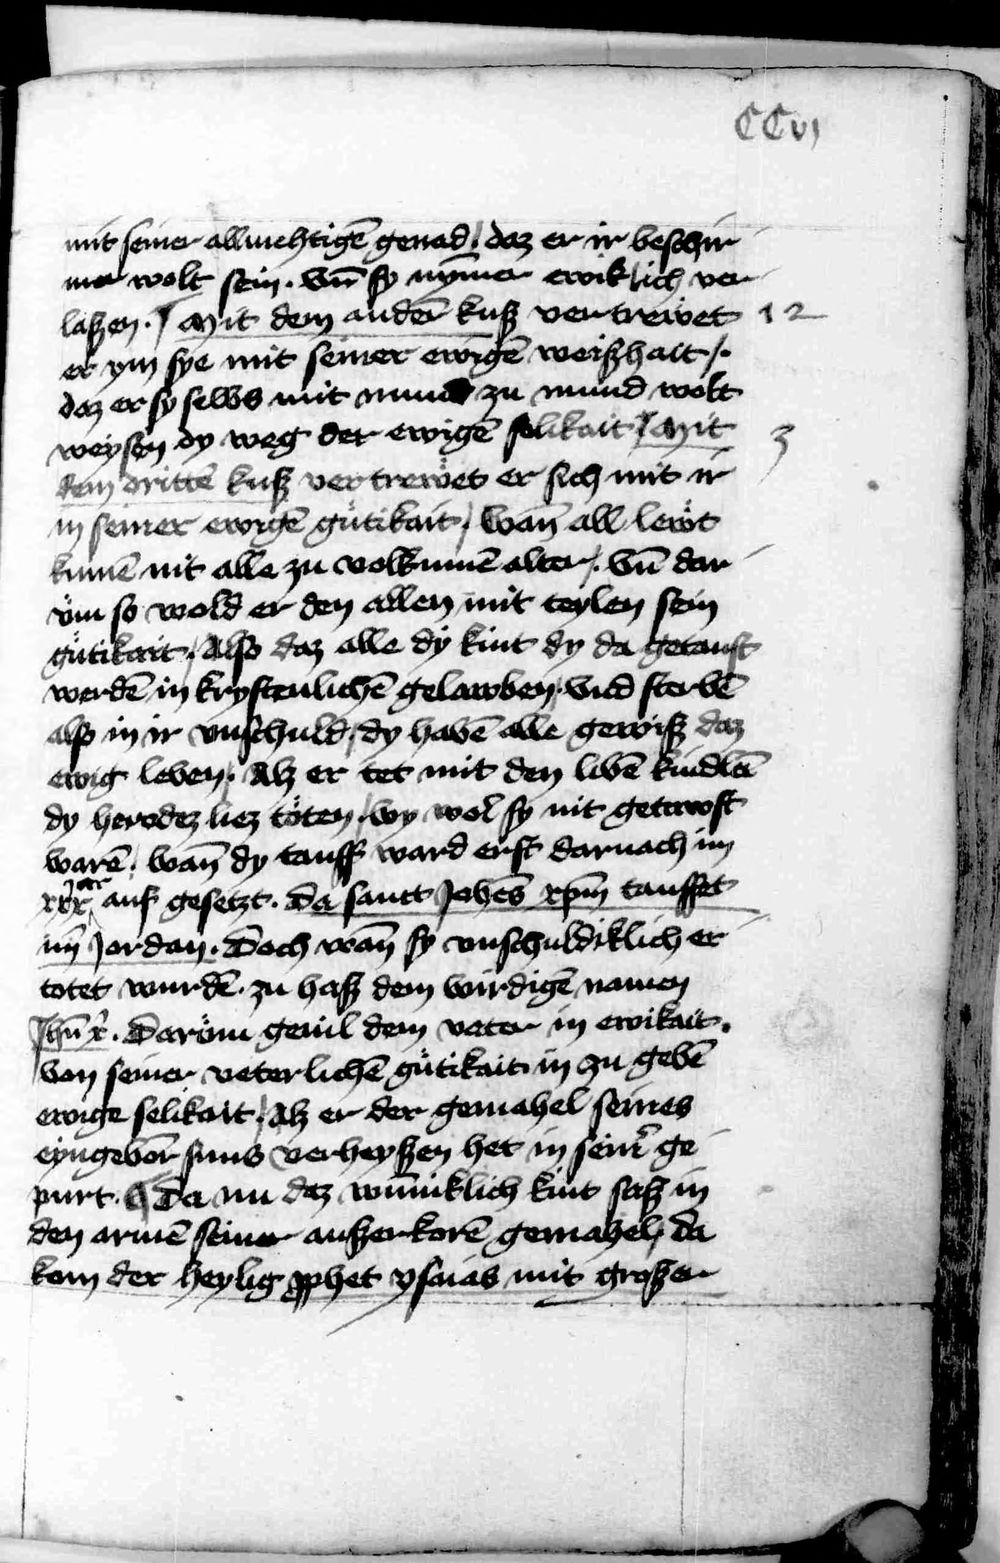 CCvj
mit seiner allmehtigē genad / daz er ir beschir
mer wolt sein . Vn̄ sy nym̄er ewiklich ver
laßen . / Mit dem anderē kuß vertrewet 12
er ym sye mit seiner ewigē weißhait / .
daz er sy selbs mit mund zu mund wolt
weysen dy weg der ewigē selikait / Mit 3
dem drittē kuß vertrewet er sich mit ir
in seiner ewigē gütikait / Wan̄ all lewt
kumē nit alle zu volkumē alter / . Vn̄ dar
vm so wold er den allen mit teylen sein
gütikait / Also daz alle dÿ kint dy da getauft
werdē in krystenlichē gelawben / vnd sterbē
also in ir vnschuld / dy habē alle gewiß daz
ewig leben / . Alz er tet mit den libē kindlē
dy herodez liez töten / wy wol sy nit getawft
warē / wan̄ dy tauff ward erst darnach im
xxx ar auf gesetzt . Da sanct Johēs xpm̄ tauffet
im̄ Jordan . Doch wan̄ sy vnschuldiklich er
totet wurdē . zu haß dem wirdigē namen
Jhū x̄ . Darüm geuil dem vater in ewikait .
von seiner veterlichē gütikait in zu gebē
ewige selikait / Alz er der gemahel seines
eyngeborn̄ suns verheyßen het in seinr̄ ge
purt . Da nu daz win̄iklich kint saß in
den armē seiner außerkorē gemahel / da
kom der heylig ꝓphet ysaias mit großer